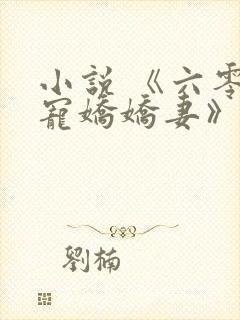 小說 《六零
寵嬌嬌妻》
劉楠